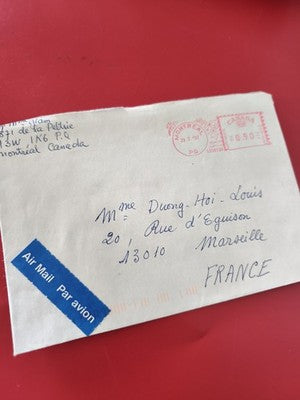 871 de la Peltrie
H3W 1K6 P.Q
Montréal Canada
MONTREAL
PQ
CANADA
Mme Duong-Hoi-Louis
20, Rue d'Eguison
13010 Marseille
FRANCE
Air Mail Par avion